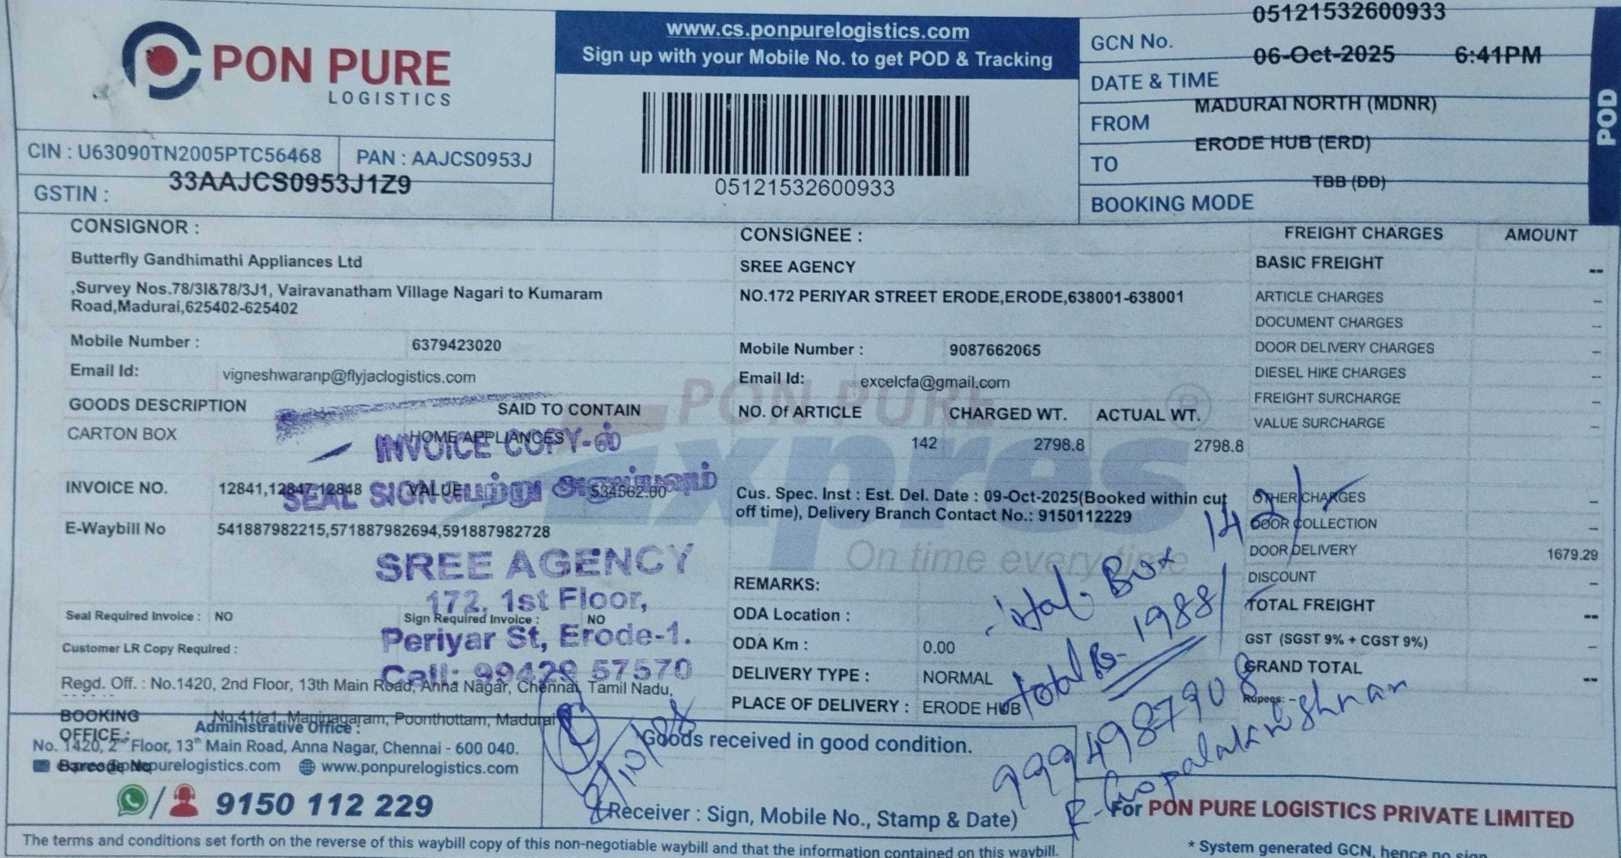 PON PURE
LOGISTICS
www.cs.ponpurelogistics.com
Sign up with your Mobile No. to get POD & Tracking
05121532600933
GCN No. 05121532600933
DATE & TIME 06-Oct-2025 6:41PM
FROM MADURAI NORTH (MDNR)
TO ERODE HUB (ERD)
BOOKING MODE TBB (DD)
POD
CIN : U63090TN2005PTC56468 PAN : AAJCS0953J
GSTIN : 33AAJCS0953J1Z9
CONSIGNOR :
Butterfly Gandhimathi Appliances Ltd
,Survey Nos.78/3I&78/3J1, Vairavanatham Village Nagari to Kumaram
Road,Madurai,625402-625402
Mobile Number : 6379423020
Email Id: vigneshwaranp@flyjaclogistics.com
GOODS DESCRIPTION SAID TO CONTAIN
CARTON BOX HOME APPLIANCES
INVOICE COPY-ல்
INVOICE NO. 12841,12847,12848 VALUE 534562.00
SEAL SIGN பெற்று அனுப்பவும்
E-Waybill No 541887982215,571887982694,591887982728
SREE AGENCY
172, 1st Floor,
Periyar St, Erode-1.
Call: 99429 57570
Seal Required Invoice : NO Sign Required Invoice : NO
Customer LR Copy Required :
Regd. Off. : No.1420, 2nd Floor, 13th Main Road, Anna Nagar, Chennai, Tamil Nadu,
BOOKING OFFICE : Maninagaram, Poonthottam, Madurai
Administrative Office :
No. 1420, 2nd Floor, 13th Main Road, Anna Nagar, Chennai - 600 040.
purelogistics.com www.ponpurelogistics.com
9150 112 229
CONSIGNEE :
SREE AGENCY
NO.172 PERIYAR STREET ERODE,ERODE,638001-638001
Mobile Number : 9087662065
Email Id: excelcfa@gmail.com
NO. Of ARTICLE CHARGED WT. ACTUAL WT.
142 2798.8 2798.8
PON PURE
Expres
On time every time
Cus. Spec. Inst : Est. Del. Date : 09-Oct-2025(Booked within cut
off time), Delivery Branch Contact No.: 9150112229
REMARKS:
ODA Location :
ODA Km : 0.00
DELIVERY TYPE : NORMAL
PLACE OF DELIVERY : ERODE HUB
142/
total Rs. 1988/
9994987908
R. Gopalakrishnan
Goods received in good condition.
(Receiver : Sign, Mobile No., Stamp & Date)
FREIGHT CHARGES AMOUNT
BASIC FREIGHT --
ARTICLE CHARGES –
DOCUMENT CHARGES –
DOOR DELIVERY CHARGES –
DIESEL HIKE CHARGES –
FREIGHT SURCHARGE –
VALUE SURCHARGE –
OTHER CHARGES –
DOOR COLLECTION –
DOOR DELIVERY 1679.29
DISCOUNT –
TOTAL FREIGHT --
GST (SGST 9% + CGST 9%) –
GRAND TOTAL --
Rupees: -
For PON PURE LOGISTICS PRIVATE LIMITED
The terms and conditions set forth on the reverse of this waybill copy of this non-negotiable waybill and that the information contained on this waybill.
* System generated GCN, hence no sign